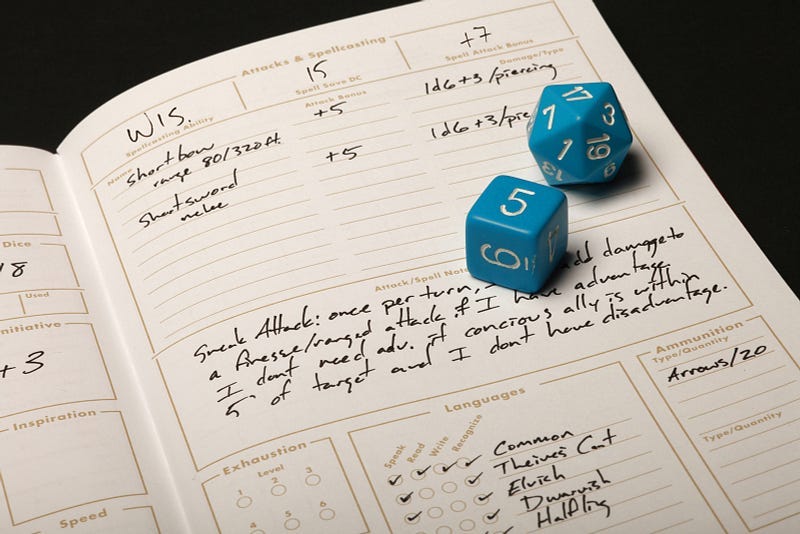 Attacks & Spellcasting
WIS.
Spellcasting Ability
15
Spell Save DC
+7
Spell Attack Bonus
Name
Attack Bonus
Damage/Type
shortbow
range 80/320ft.
+5
1d6+3/piercing
shortsword
melee
+5
1d6+3/pie
17
7
3
1
19
13
5
6
Attack/Spell Not
Sneak Attack: once per turn, add damage to
a finesse/ranged attack if I have advantage
I dont need adv. if concious ally is within
5' of target and I dont have disadvantage.
Dice
/8
Used
nitiative
+3
Inspiration
Speed
Exhaustion
Level
1 2 3
4 5 6
Languages
Speak
Read
Write
Recognize
Common
Theives Cant
Elvish
Dwarvish
Halfling
Ammunition
Type/Quantity
Arrows/20
Type/Quantity